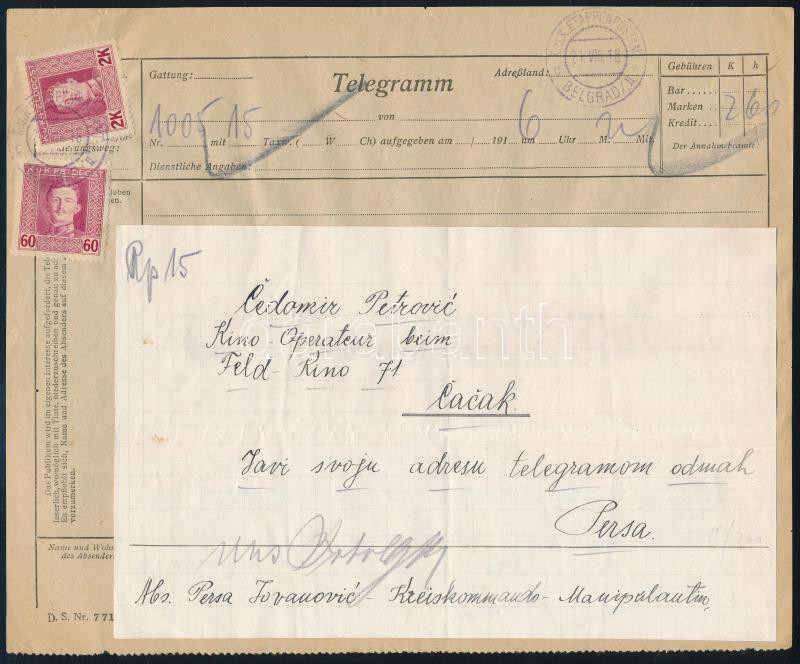 K.U.K. FELDPOST
2K
2K
K.U.K. FELDPOST
60 60
Gattung:
Telegramm
Adreßland:
K.u.K. ETAPPENPOSTAMT
11. VIII. 18
BELGRAD/II
Gebühren K h
Bar
Marken
Kredit
2 60
Der Annahmebeamte:
von
1005 15 6
Nr. mit Taxw. ( W Ch) aufgegeben am / 191 um Uhr M. Mit.
Dienstliche Angaben:
Das Publikum wird im eigenen Interesse aufgefordert, die Tele
leserlich, womöglich mit Tinte, niederzuschreiben und genau zu adr
Es empfiehlt sich, Name und Adresse des Absenders auf diesem
vorzumerken.
Name und Wohn
des Absenders
D. S. Nr. 771
Rp 15
Čedomir Petrović
Kino-Operateur beim
Feld-Kino 71
Čačak.
Javi svoju adresu telegramom odmah
Persa.
Abs. Persa Jovanović - Kreiskommando - Manipulantin,